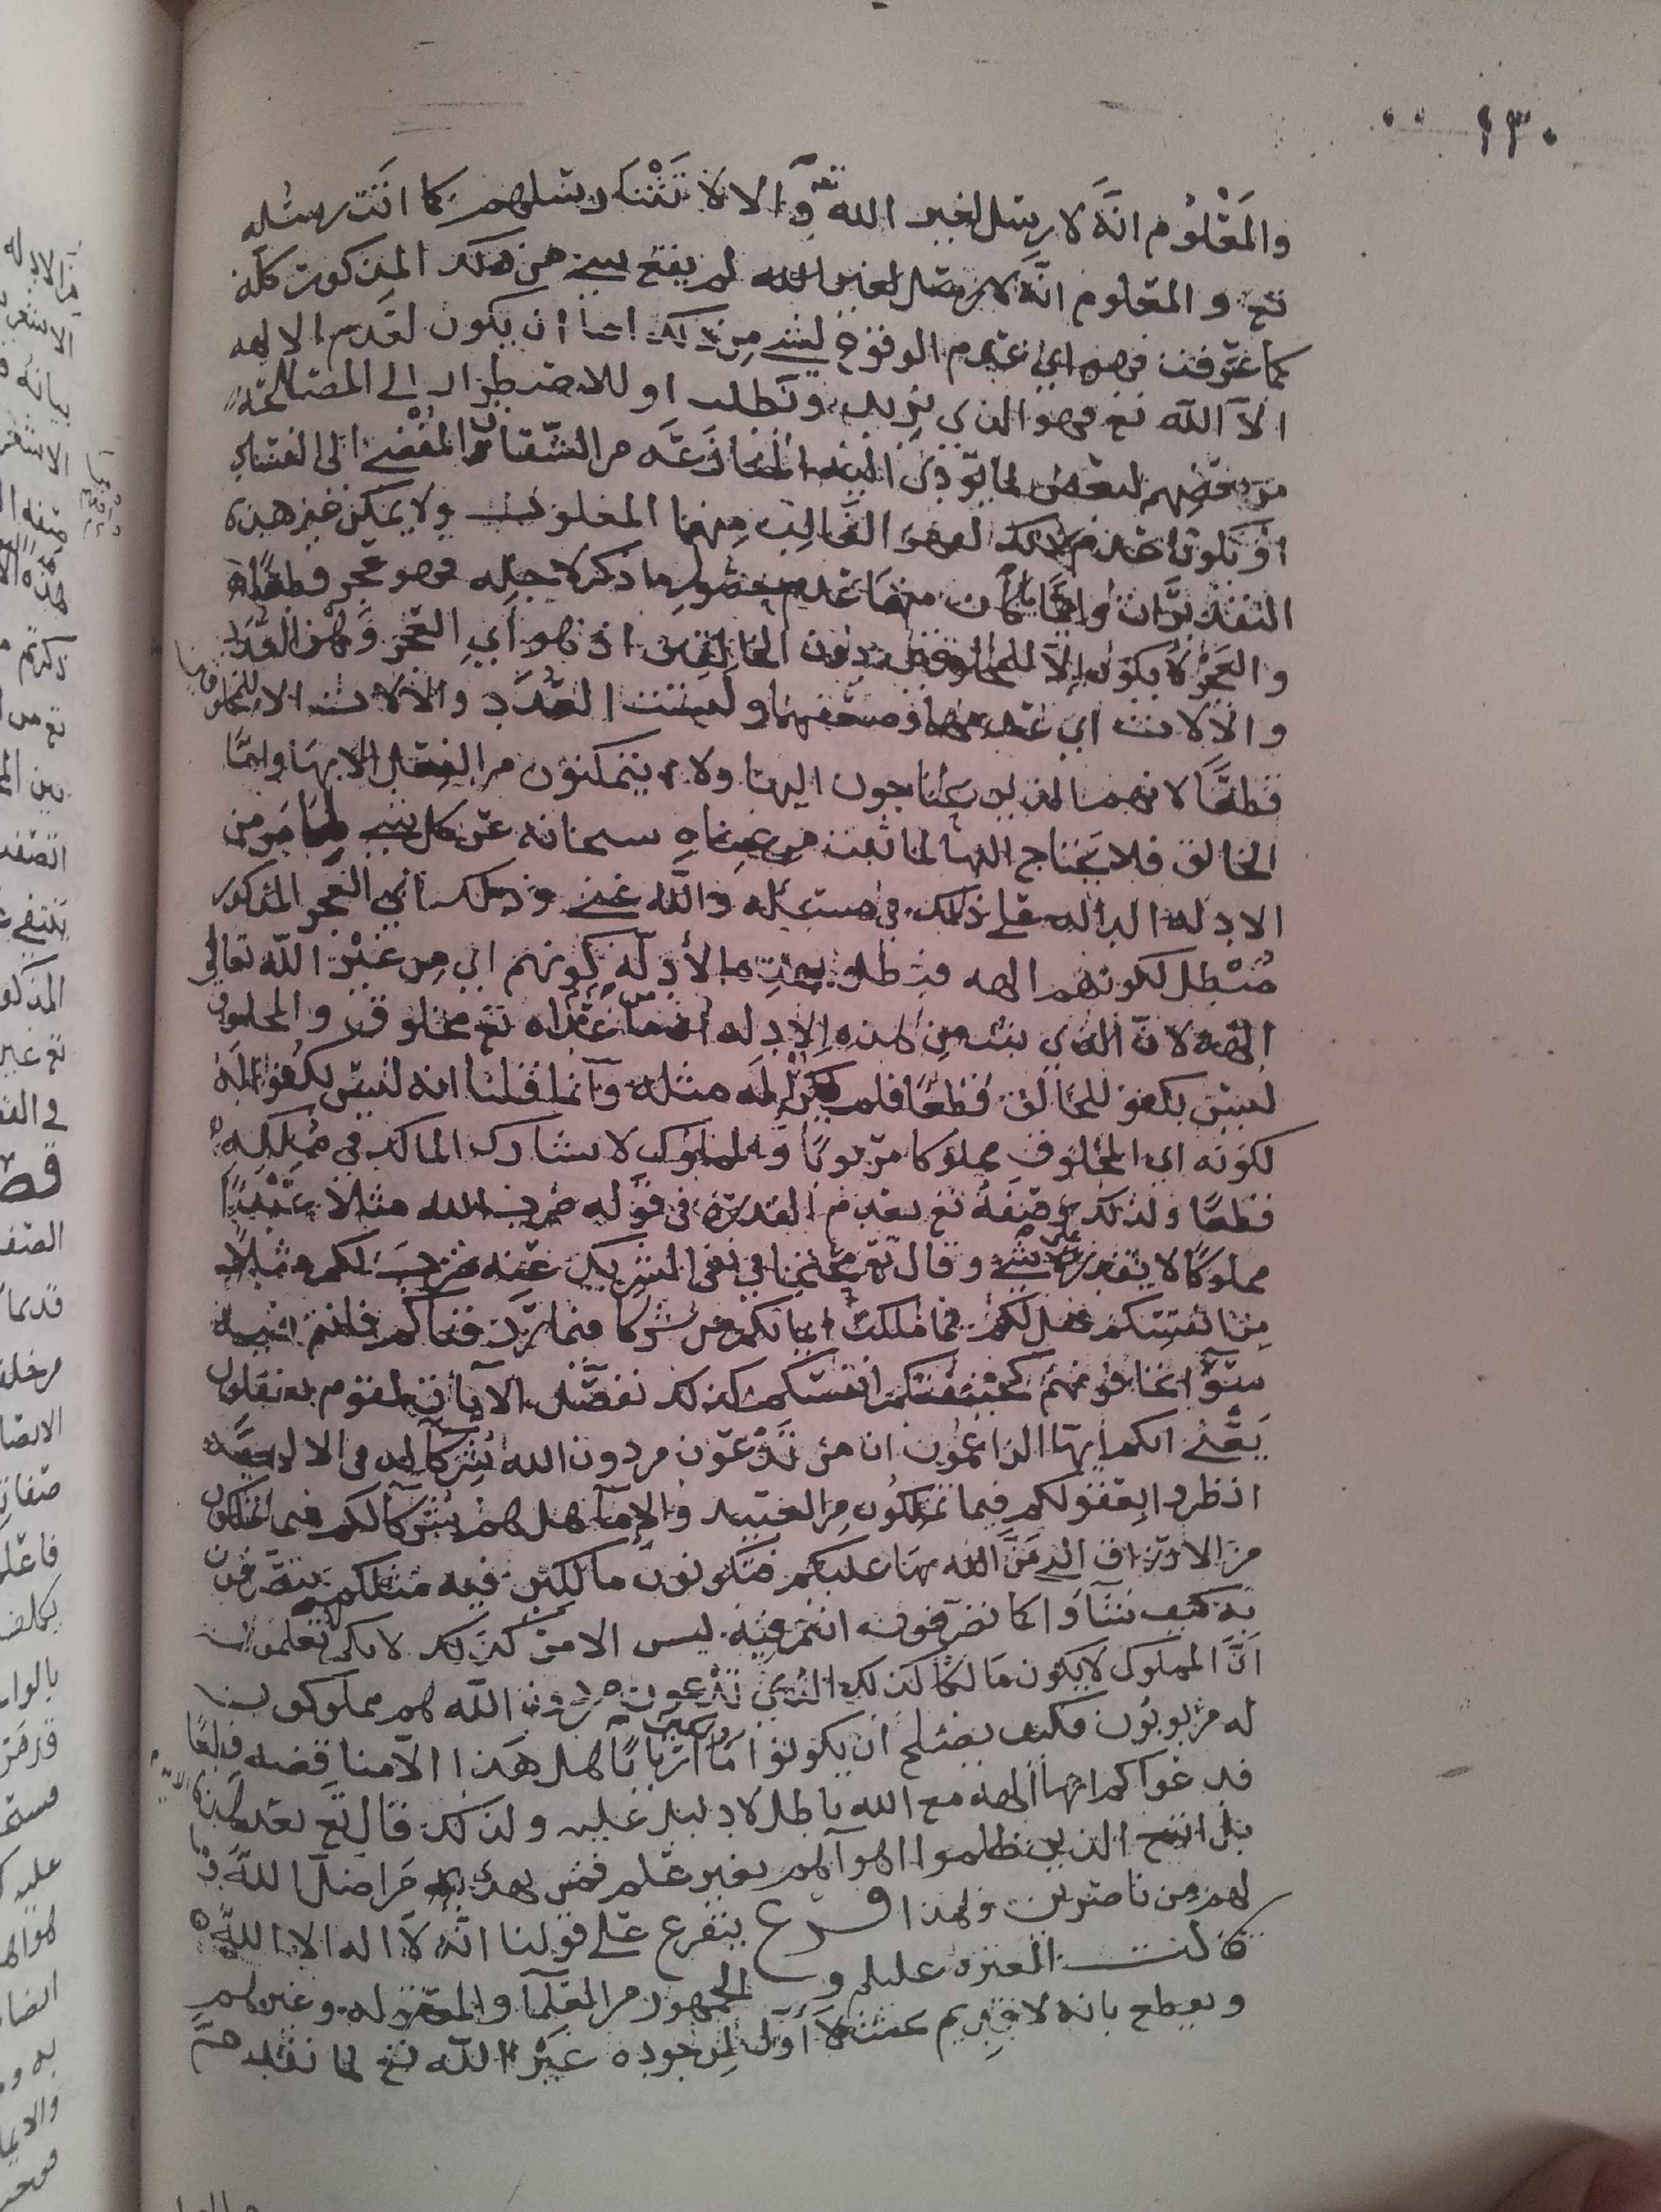 ١٣٠
والمعلوم انه لا رسل لغير الله تع والا لاتتنا رسلهم كما اتت رسله
تع والمعلوم انه لا رسل لغير الله لم يقع شي من ذلك المذكور كله
كما عرفت فهو اي عدم الوقوع لشي من ذلك اما ان يكون لعدم الاله
الا الله تع فهو الذي نريد ونطلب او للاضطرار الى المصالحة
من بعضهم لبعض لما تؤدي اليه المنازعة من الشقاق المفضي الى الفساد
او يكون عدم ذلك لقهر الغالب منهما المغلوب ولا يمكن غير هذه
التقديرات وايما كان منها عدم حصول ما ذكر لاجله فهو عجز قطعا
والعجز لا يكون الا للمخلوقين دون الخالقين اذ هو اي العجز وهن العدد
والالات اي عدمها وضعفها وليست العدد والالات الا للمخلوقين
قطعا لانهم الذين يحتاجون اليها ولا يتمكنون من الفعل الا بها واما
الخالق فلا يحتاج اليها لما ثبت من غناه سبحانه عن كل شي لما مر من
الادلة الدالة على ذلك في مسئلة والله غني وذلك اي العجز المذكور
مبطل لكونهم الهة فبطل بهذه الأدلة كونهم اي من غير الله تعالى
الهة لان الذي ثبت من هذه الادلة ان من عداه تع مخلوق والمخلوق
ليس بكفو للخالق قطعا فلم يكن اله مثله وانما قلنا انه ليس بكفو له
لكونه اي المخلوق مملوكا مربوبا والمملوك لا يشارك المالك في ملكه
قطعا ولذلك وصفه تع بعدم القدرة في قوله ضرب الله مثلا عبدا
مملوكا لا يقدر على شي وقال تع محتجا في نفي الشريك عنه ضرب لكم مثلا
من انفسكم هل لكم مما ملكت ايمانكم من شركا فيما رزقناكم فانتم فيه
سوآ تخافونهم كخيفتكم انفسكم كذلك نفصل الآيات لقوم يعقلون
يعني انكم ايها الزاعمون ان من تدعون من دون الله شركآ له في الالهية
انظروا بعقولكم فيما تملكون من العبيد والإمآ هل هم شركآ لكم فيما تملكون
من الارزاق التي من الله بها عليكم فتكونون مالكين فيه مثلكم يتصرفون
به كيف شآؤا كما تتصرفون انتم فيه ليس الامر كذلك لانكم تعلمون
ان المملوك لا يكون مالكا كذلك الذين تدعون من دون الله هم مملوكون
له مربوبون فكيف يصلح ان يكونوا أربابا هل هذا الا مناقضه قطعا
فدعواكم انها الهة مع الله باطل لا دليل عليه ولذلك قال تع بعد هذه الآية
بل اتبع الذين ظلموا اهوآهم بغير علم فمن يهدي من اضل الله وما
لهم من ناصرين ولهذا فرع يتفرع على قولنا انه لا اله الا الله
قالت العترة عليلم والجمهور من العلمآ والمعتزله وغيرهم
ويقطع بانه لا قديم لا أول لوجوده غير الله تع لما تقدم